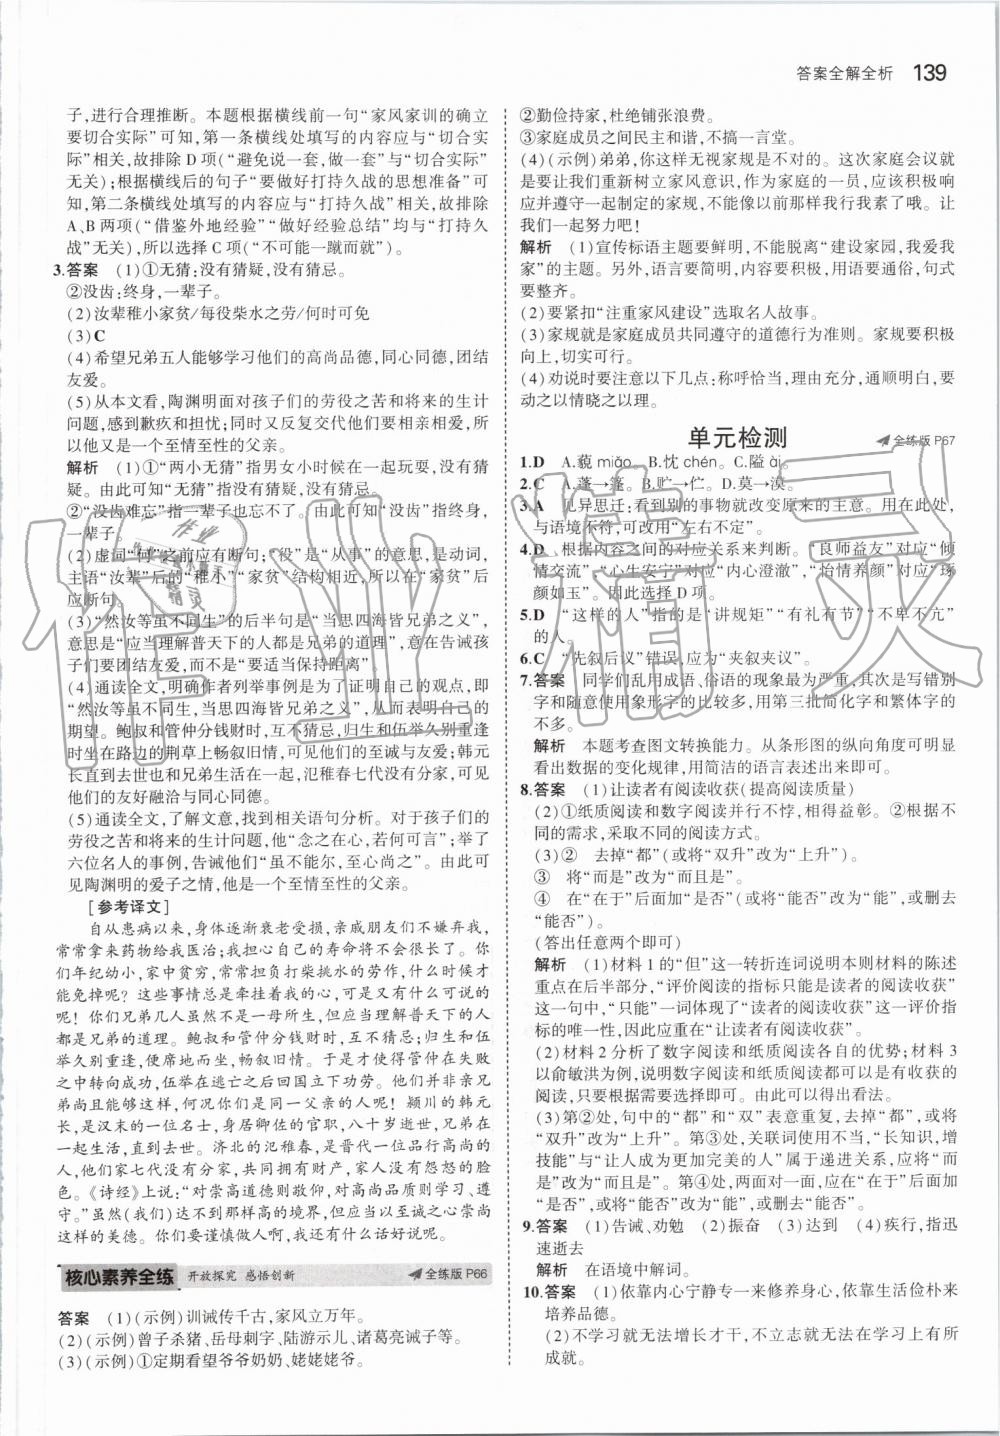 答案全解全析 139
子,进行合理推断。本题根据横线前一句“家风家训的确立
要切合实际”可知,第一条横线处填写的内容应与“切合实
际”相关,故排除 D 项(“避免说一套,做一套”与“切合实际”
无关);根据横线后的句子“要做好打持久战的思想准备”可
知,第二条横线处填写的内容应与“打持久战”相关,故排除
A、B 两项(“借鉴外地经验”“做好经验总结”均与“打持久
战”无关),所以选择 C 项(“不可能一蹴而就”)。
3.答案 (1)①无猜:没有猜疑,没有猜忌。
②没齿:终身,一辈子。
(2)汝辈稚小家贫/每役柴水之劳/何时可免
(3)C
(4)希望兄弟五人能够学习他们的高尚品德,同心同德,团结
友爱。
(5)从本文看,陶渊明面对孩子们的劳役之苦和将来的生计
问题,感到歉疚和担忧;同时又反复交代他们要兄弟和睦。所
以他又是一个至情至性的父亲。
解析 (1)①“两小无猜”指男女小时候在一起玩耍,没有猜
疑。由此可知“无猜”指没有猜疑,没有猜忌。
②“没齿难忘”指一辈子也忘不了。由此可知“没齿”指终身,
一辈子。
(2)虚词“何”之前应有断句;“役”是“从事”的意思,是动词,
主语“汝辈”后的“稚小”“家贫”结构相近,所以在“家贫”后
应断句。
(3)“然汝等虽不同生”的后半句是“当思四海皆兄弟之义”,
意思是“应当理解普天下的人都是兄弟的道理”,意在告诫孩
子们要团结友爱,而不是“要适当保持距离”。
(4)通读全文,明确作者列举事例是为了证明自己的观点,即
“然汝等虽不同生,当思四海皆兄弟之义”,从而表明自己的
期望。鲍叔和管仲分钱财时,互不猜忌,归生和伍举久别重逢
时坐在路边的荆草上畅叙旧情,可见他们的至诚与友爱;韩元
长直到去世也和兄弟生活在一起,氾稚春七代没有分家,可见
他们的友好融洽与同心同德。
(5)通读全文,了解文意,找到相关语句分析。对于孩子们的
劳役之苦和将来的生计问题,他“念之在心,若何可言”;举了
六位名人的事例,告诫他们“虽不能尔,至心尚之”。由此可
见陶渊明的爱子之情,他是一个至情至性的父亲。
[参考译文]
自从患病以来,身体逐渐衰老受损,亲戚朋友们不嫌弃我,
常常拿来药物给我医治;我担心自己的寿命将不会很长了。你
们年纪幼小,家中贫穷,常常担负打柴挑水的劳作,什么时候才
能免掉呢?这些事情总是牵挂着我的心,可是又有什么可说的
呢!你们兄弟几人虽然不是一母所生,但应当理解普天下的人
都是兄弟的道理。鲍叔和管仲分钱财时,互不猜忌;归生和伍
举久别重逢,便席地而坐,畅叙旧情。于是才使得管仲在失败
之中转向成功,伍举在逃亡之后回国立下功劳。他们并非亲兄
弟尚且能够这样,何况你们是同一父亲的人呢!颍川的韩元
长,是汉末的一位名士,身居卿佐的官职,八十岁逝世,兄弟在
一起生活,直到去世。济北的氾稚春,是晋代一位品行高尚的
人,他们家七代没有分家,共同拥有财产,家人没有怨怒的脸
色。《诗经》上说:“对崇高道德则敬仰,对高尚品质则学习、遵
守。”虽然(我们)达不到那样高的境界,但应当以至诚之心崇尚
这样的美德。你们要谨慎做人啊,我还有什么话好说呢。
核心素养全练 开放探究 感悟创新 全练版 P66
答案 (1)(示例)训诫传千古,家风立万年。
(2)(示例)曾子杀猪、岳母刺字、陆游示儿、诸葛亮诫子等。
(3)(示例)①定期看望爷爷奶奶、姥姥姥爷。
②勤俭持家,杜绝铺张浪费。
③家庭成员之间民主和谐,不搞一言堂。
(4)(示例)弟弟,你这样无视家规是不对的。这次家庭会议就
是要让我们重新树立家风意识,作为家庭的一员,应该积极响
应并遵守一起制定的家规,不能像以前那样我行我素了哦。让
我们一起努力吧!
解析 (1)宣传标语主题要鲜明,不能脱离“建设家园,我爱我
家”的主题。另外,语言要简明,内容要积极,用语要通俗,句式
要整齐。
(2)要紧扣“注重家风建设”选取名人故事。
(3)家规就是家庭成员共同遵守的道德行为准则。家规要积极
向上,切实可行。
(4)劝说时要注意以下几点:称呼恰当,理由充分,通顺明白,要
动之以情晓之以理。
单元检测 全练版 P67
1.D A.藐 miǎo。B.忱 chén。C.隘 ài。
2.C A.蓬→篷。B.贮→伫。D.莫→漠。
3.A 见异思迁:看到别的事物就改变原来的主意。用在此处,
与语境不符,可改用“左右不定”。
4.D 根据内容之间的对应关系来判断。“良师益友”对应“倾
情交流”,“心生安宁”对应“内心澄澈”,“怡情养颜”对应“琢
颜如玉”。因此选择 D 项。
5.D “这样的人”指的是“讲规矩”“有礼有节”“不卑不亢”
的人。
6.C “先叙后议”错误,应为“夹叙夹议”。
7.答案 同学们乱用成语、俗语的现象最为严重,其次是写错别
字和随意使用象形字的比较多,用第三批简化字和繁体字的
不多。
解析 本题考查图文转换能力。从条形图的纵向角度可明显
看出数据的变化规律,用简洁的语言表述出来即可。
8.答案 (1)让读者有阅读收获(提高阅读质量)
(2)①纸质阅读和数字阅读并行不悖,相得益彰。②根据不
同的需求,采取不同的阅读方式。
(3)② 去掉“都”(或将“双升”改为“上升”)。
③ 将“而是”改为“而且是”。
④ 在“在于”后面加“是否”(或将“能否”改为“能”,或删去
“能否”)。
(答出任意两个即可)
解析 (1)材料 1 的“但”这一转折连词说明本则材料的陈述
重点在后半部分,“评价阅读的指标只能是读者的阅读收获”
这一句中,“只能”一词体现了“读者的阅读收获”这一评价指
标的唯一性,因此应重在“让读者有阅读收获”。
(2)材料 2 分析了数字阅读和纸质阅读各自的优势;材料 3
以俞敏洪为例,说明数字阅读和纸质阅读都是有收获的
阅读,只要根据需要选择即可。由此可以得出看法。
(3)第②处,句中的“都”和“双”表意重复,去掉“都”,或将
“双升”改为“上升”。第③处,关联词使用不当,“长知识,增
技能”与“让人成为更加完美的人”属于递进关系,应将“而
是”改为“而且是”。第④处,两面对一面,应在“在于”后面加
“是否”,或将“能否”改为“能”,或删去“能否”。
9.答案 (1)告诫、劝勉 (2)振奋 (3)达到 (4)疾行,指迅
速逝去
解析 在语境中解词。
10.答案 (1)依靠内心宁静专一来修养身心,依靠生活俭朴来
培养品德。
(2)不学习就无法增长才干,不立志就无法在学习上有所
成就。
作业精灵